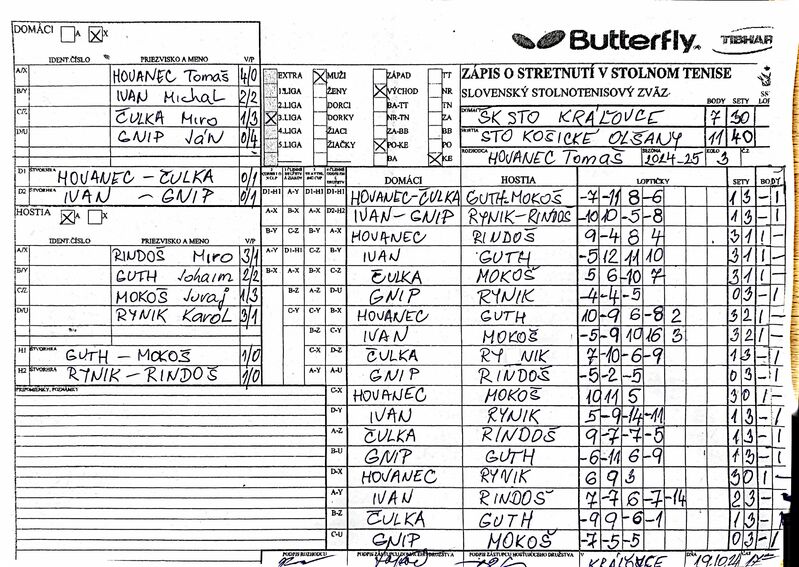 DOMÁCI A X
Butterfly TIBHAR
IDENT.ČÍSLO PRIEZVISKO A MENO V/P
A/X HOVANEC Tomáš 4/0
B/Y IVAN Michal 2/2
C/Z ČULKA Miro 1/3
D/U GNIP Ján 0/4
EXTRA MUŽI ZÁPAD TT
1.LIGA ŽENY VÝCHOD NR
2.LIGA DORCI BA-TT TN
3.LIGA DORKY NR-TN ZA
4.LIGA ŽIACI ZA-BB BB
5.LIGA ŽIAČKY PO-KE PO
BA KE
ZÁPIS O STRETNUTÍ V STOLNOM TENISE
SLOVENSKÝ STOLNOTENISOVÝ ZVÄZ
BODY SETY
DOMÁCI ŠK STO KRÁĽOVCE 7 30
HOSTIA STO KOŠICKÉ OĽŠANY 11 40
ROZHODCA HOVANEC Tomáš SEZÓNA 2024-25 KOLO 3 Č.Z
D1 ŠTVORHRA HOVANEC - ČULKA 0/1
D2 ŠTVORHRA IVAN - GNIP 0/1
HOSTIA A X
IDENT.ČÍSLO PRIEZVISKO A MENO V/P
A/X RINDOŠ Miro 3/1
B/Y GUTH Johaim 2/2
C/Z MOKOŠ Juraj 1/3
D/U RYNIK Karol 3/1
H1 ŠTVORHRA GUTH - MOKOŠ 1/0
H2 ŠTVORHRA RYNIK - RINDOŠ 1/0
PRIPOMIENKY, POZNÁMKY
DOMÁCI HOSTIA LOPTIČKY SETY BODY
D1-H1 A-Y B-X D1-H1 HOVANEC-ČULKA GUTH-MOKOŠ -7 -11 8 -6 1 3 - 1
A-X B-X A-X D2-H2 IVAN-GNIP RYNIK-RINDOŠ -10 10 -5 -8 1 3 - 1
B-Y C-Z C-Y A-X HOVANEC RINDOŠ 9 -4 8 4 3 1 1 -
A-Y D1-H1 C-Z B-Y IVAN GUTH -5 12 11 10 3 1 1 -
B-X A-X B-X C-Z ČULKA MOKOŠ 5 6 -10 7 3 1 1 -
B-Z A-Z D-U GNIP RYNIK -4 -4 -5 0 3 - 1
C-Y B-Y A-Y HOVANEC GUTH 10 -9 6 -8 2 3 2 1 -
B-Z C-Y IVAN MOKOŠ -5 -9 10 16 3 3 2 1 -
C-X D-Z ČULKA RYNIK 7 -10 -6 -9 1 3 - 1
A-Y A-U GNIP RINDOŠ -5 -2 -5 0 3 - 1
C-X HOVANEC MOKOŠ 10 11 5 3 0 1 -
D-Y IVAN RYNIK 5 -9 -14 -11 1 3 - 1
A-Z ČULKA RINDOŠ 9 -7 -7 -5 1 3 - 1
B-U GNIP GUTH -6 -11 6 -9 1 3 - 1
D-X HOVANEC RYNIK 6 9 3 3 0 1 -
A-Y IVAN RINDOŠ 7 -7 6 -7 -14 2 3 - 1
B-Z ČULKA GUTH -9 9 -6 -1 1 3 - 1
C-U GNIP MOKOŠ -7 -5 -5 0 3 - 1
PODPIS ROZHODCU PODPIS ZÁSTUPCU DOMÁCEHO DRUŽSTVA PODPIS ZÁSTUPCU HOSŤUJÚCEHO DRUŽSTVA V KRÁĽOVCE DŇA 19.10.24 ČAS